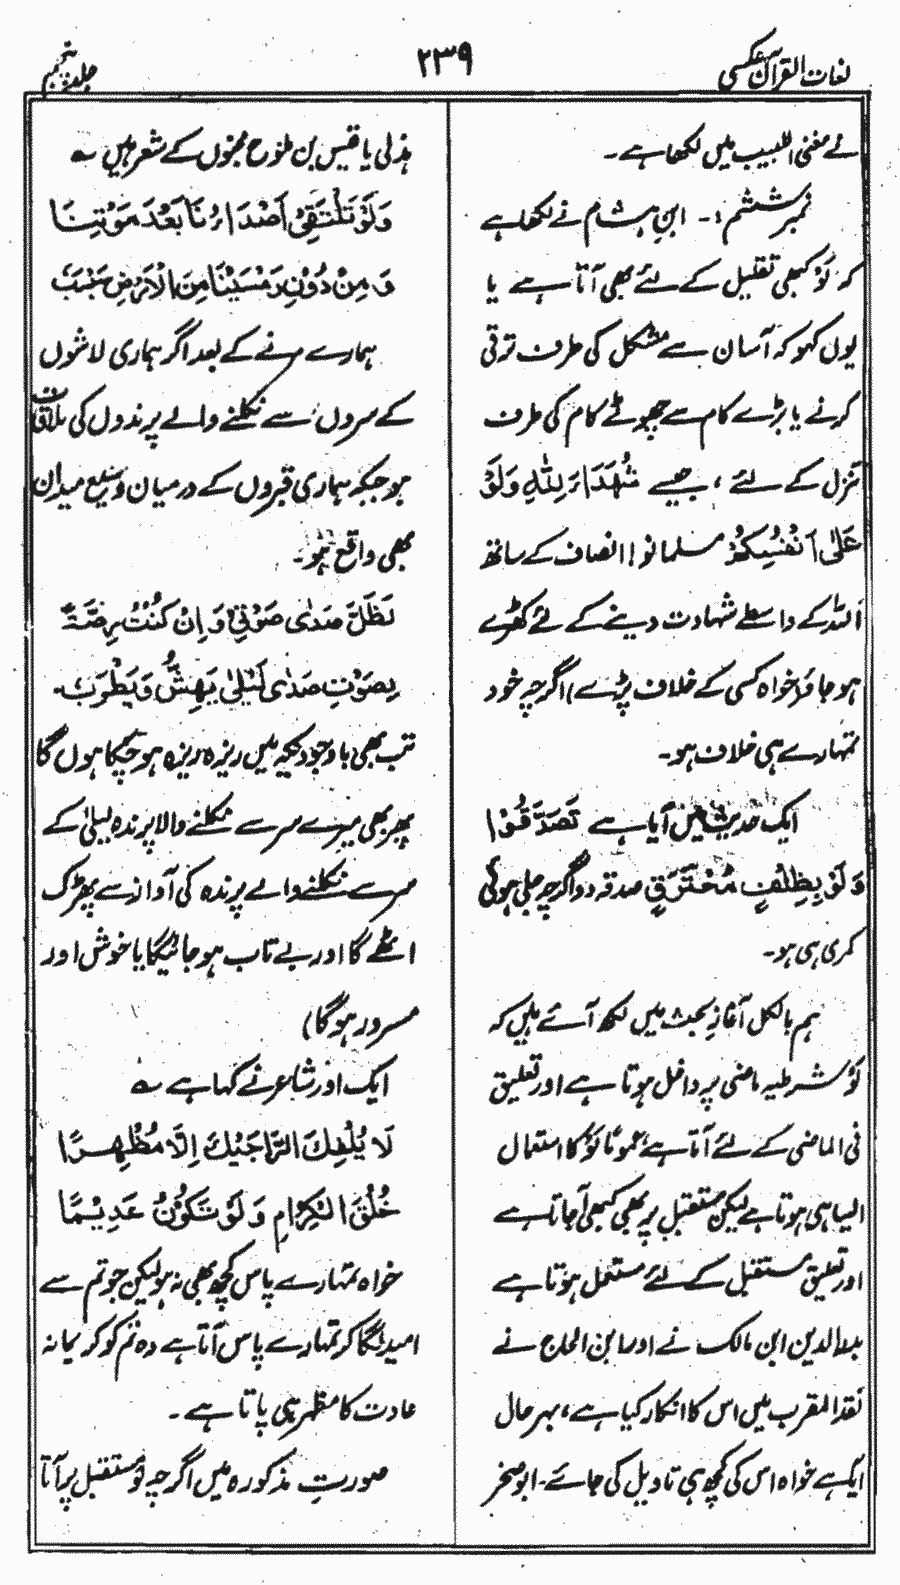 لغات القرآن عکسی
۲۳۹
جلد پنجم
نے مغنی اللبیب میں لکھا ہے۔
نمبر ششم :۔ ابن ہشام نے لکھا ہے
کہ لَوْ کبھی تقلیل کے لئے بھی آتا ہے یا
یوں کہو کہ آسان سے مشکل کی طرف ترقی
کرنے یا بڑے کام سے چھوٹے کام کی طرف
تنزل کے لئے ، جیسے شُهَدَاءَ لِلّٰہِ وَلَوْ
عَلٰی اَنْفُسِکُمْ مسلمانو! انصاف کے ساتھ
اللہ کے واسطے شہادت دینے کے لئے کھڑے
ہو جاؤ خواہ کسی کے خلاف پڑے) اگرچہ خود
تمہارے ہی خلاف ہو۔
ایک حدیث میں آیا ہے تَصَدَّقُوْا
وَلَوْ بِظِلْفٍ مُحْتَرَقٍ صدقہ دو اگرچہ جلی ہوئی
کھری ہی ہو۔
ہم بالکل آغاز بحث میں لکھ آئے ہیں کہ
لَوْ شرطیہ ماضی پر داخل ہوتا ہے اور تعلیق
فی الماضی کے لئے آتا ہے عموماً لَوْ کا استعمال
ایسا ہی ہوتا ہے لیکن مستقبل پر بھی کبھی آجاتا ہے
اور تعلیق مستقبل کے لئے مستعمل ہوتا ہے
بدرالدین ابن مالک نے اور ابن الحاج نے
نقد المقرب میں اس کا انکار کیا ہے، بہر حال
ایک ہے خواہ اس کی کچھ ہی تاویل کی جائے۔ ابو صخر
ہذلی یا قیس بن ملوح مجنوں کے شعر ہیں ؎
وَلَوْ تَلْتَقِیْ اَصْدَاءُنَا بَعْدَ مَوْتِنَا
وَمِنْ دُوْنِ رَمْسَیْنَا مِنَ الْاَرْضِ سَبْسَبُ
ہمارے مرنے کے بعد اگر ہماری لاشوں
کے سروں سے نکلنے والے پرندوں کی ملاقات
ہو جبکہ ہماری قبروں کے درمیان وسیع میدان
بھی واقع ہو۔
لَظَلَّ صَدٰی صَوْتِیْ وَاِنْ کُنْتُ رِمَّةً
بِصَوْتِ صَدٰی لَیْلٰی یَهِشُّ وَیَطْرَبُ۔
تب بھی باوجودیکہ میں ریزہ ریزہ ہو چکا ہوں گا
پھر بھی میرے سر سے نکلنے والا پرندہ لیلیٰ کے
سر سے نکلنے والے پرندہ کی آواز سے پھڑک
اٹھے گا اور بے تاب ہو جائیگا یا خوش اور
مسرور ہو گا)
ایک اور شاعر نے کہا ہے ؎
لَا یُلْفِكَ الرَّاجِیْكَ اِلَّا مُظْهِرًا
خُلُقَ الْكِرَامِ وَلَوْ تَكُوْنُ عَدِیْمًا
خواہ تمہارے پاس کچھ بھی نہ ہو لیکن جو تم سے
امید لگا کر تمہارے پاس آتا ہے وہ تم کو کریمانہ
عادت کا مظہر ہی پاتا ہے۔
صورتِ مذکورہ میں اگرچہ لَوْ مستقبل پر آتا